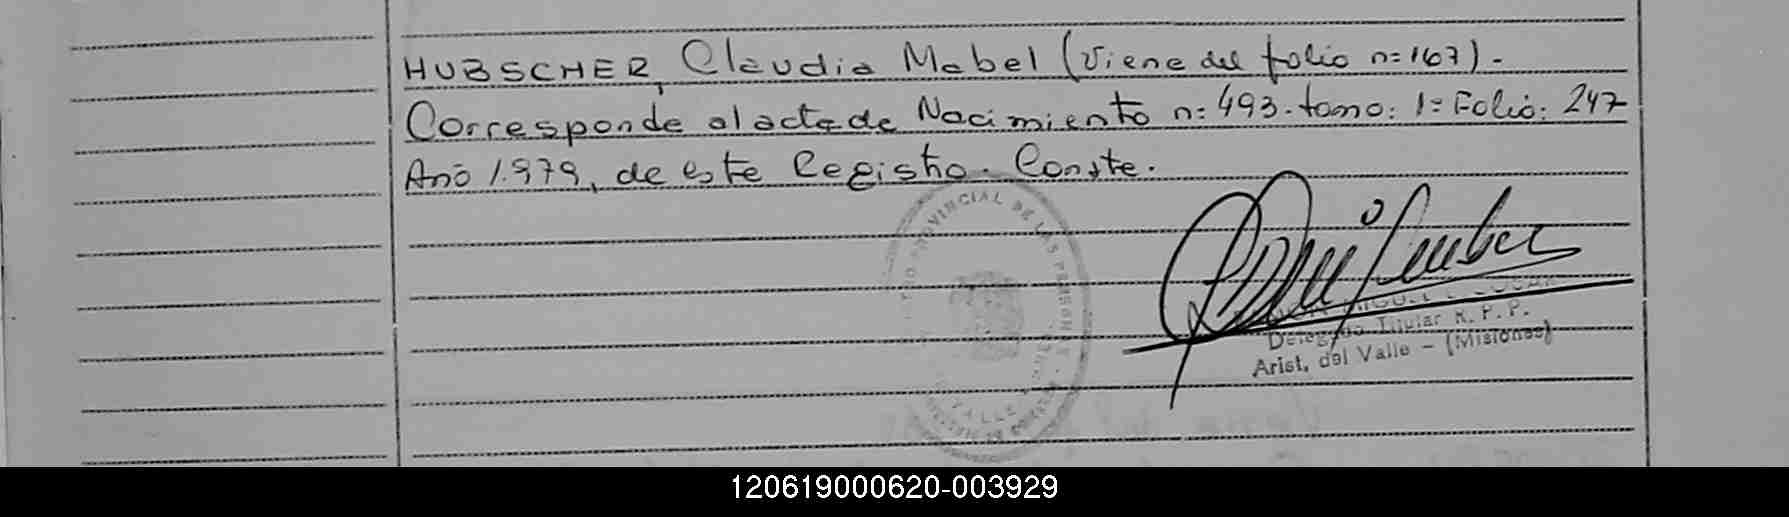 HUBSCHER, Claudia Mabel (viene del folio n=167).-
Corresponde al acta de Nacimiento n=493.tomo: 1= Folio: 247
Año 1.979, de este Registro. Conste.
REGISTRO PROVINCIAL DE LAS PERSONAS
VALLE
Delegado Titular R. P. P.
Arist. del Valle - (Misiones)
120619000620-003929